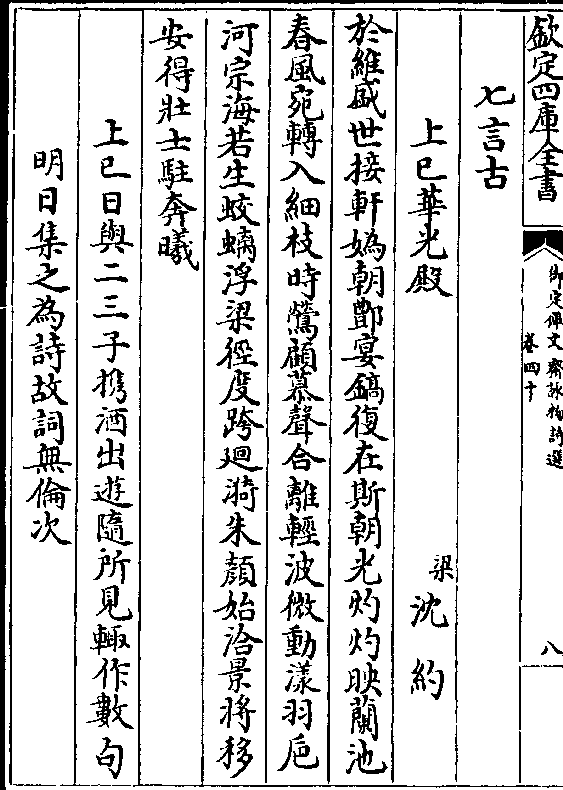 欽定四庫全書
御定佩文齋詠物詩選
卷四十
八
七言古
上巳華光殿
梁
沈約
於維盛世接軒媯朝酆宴鎬復在斯朝光灼灼映蘭池
春風宛轉入細枝時鶯顧慕聲合離輕波微動漾羽巵
河宗海若生蛟螭浮梁徑度跨迴漪朱顔始洽景將移
安得壯士駐奔曦
上巳日與二三子携酒出遊隨所見輙作數句
明日集之為詩故詞無倫次